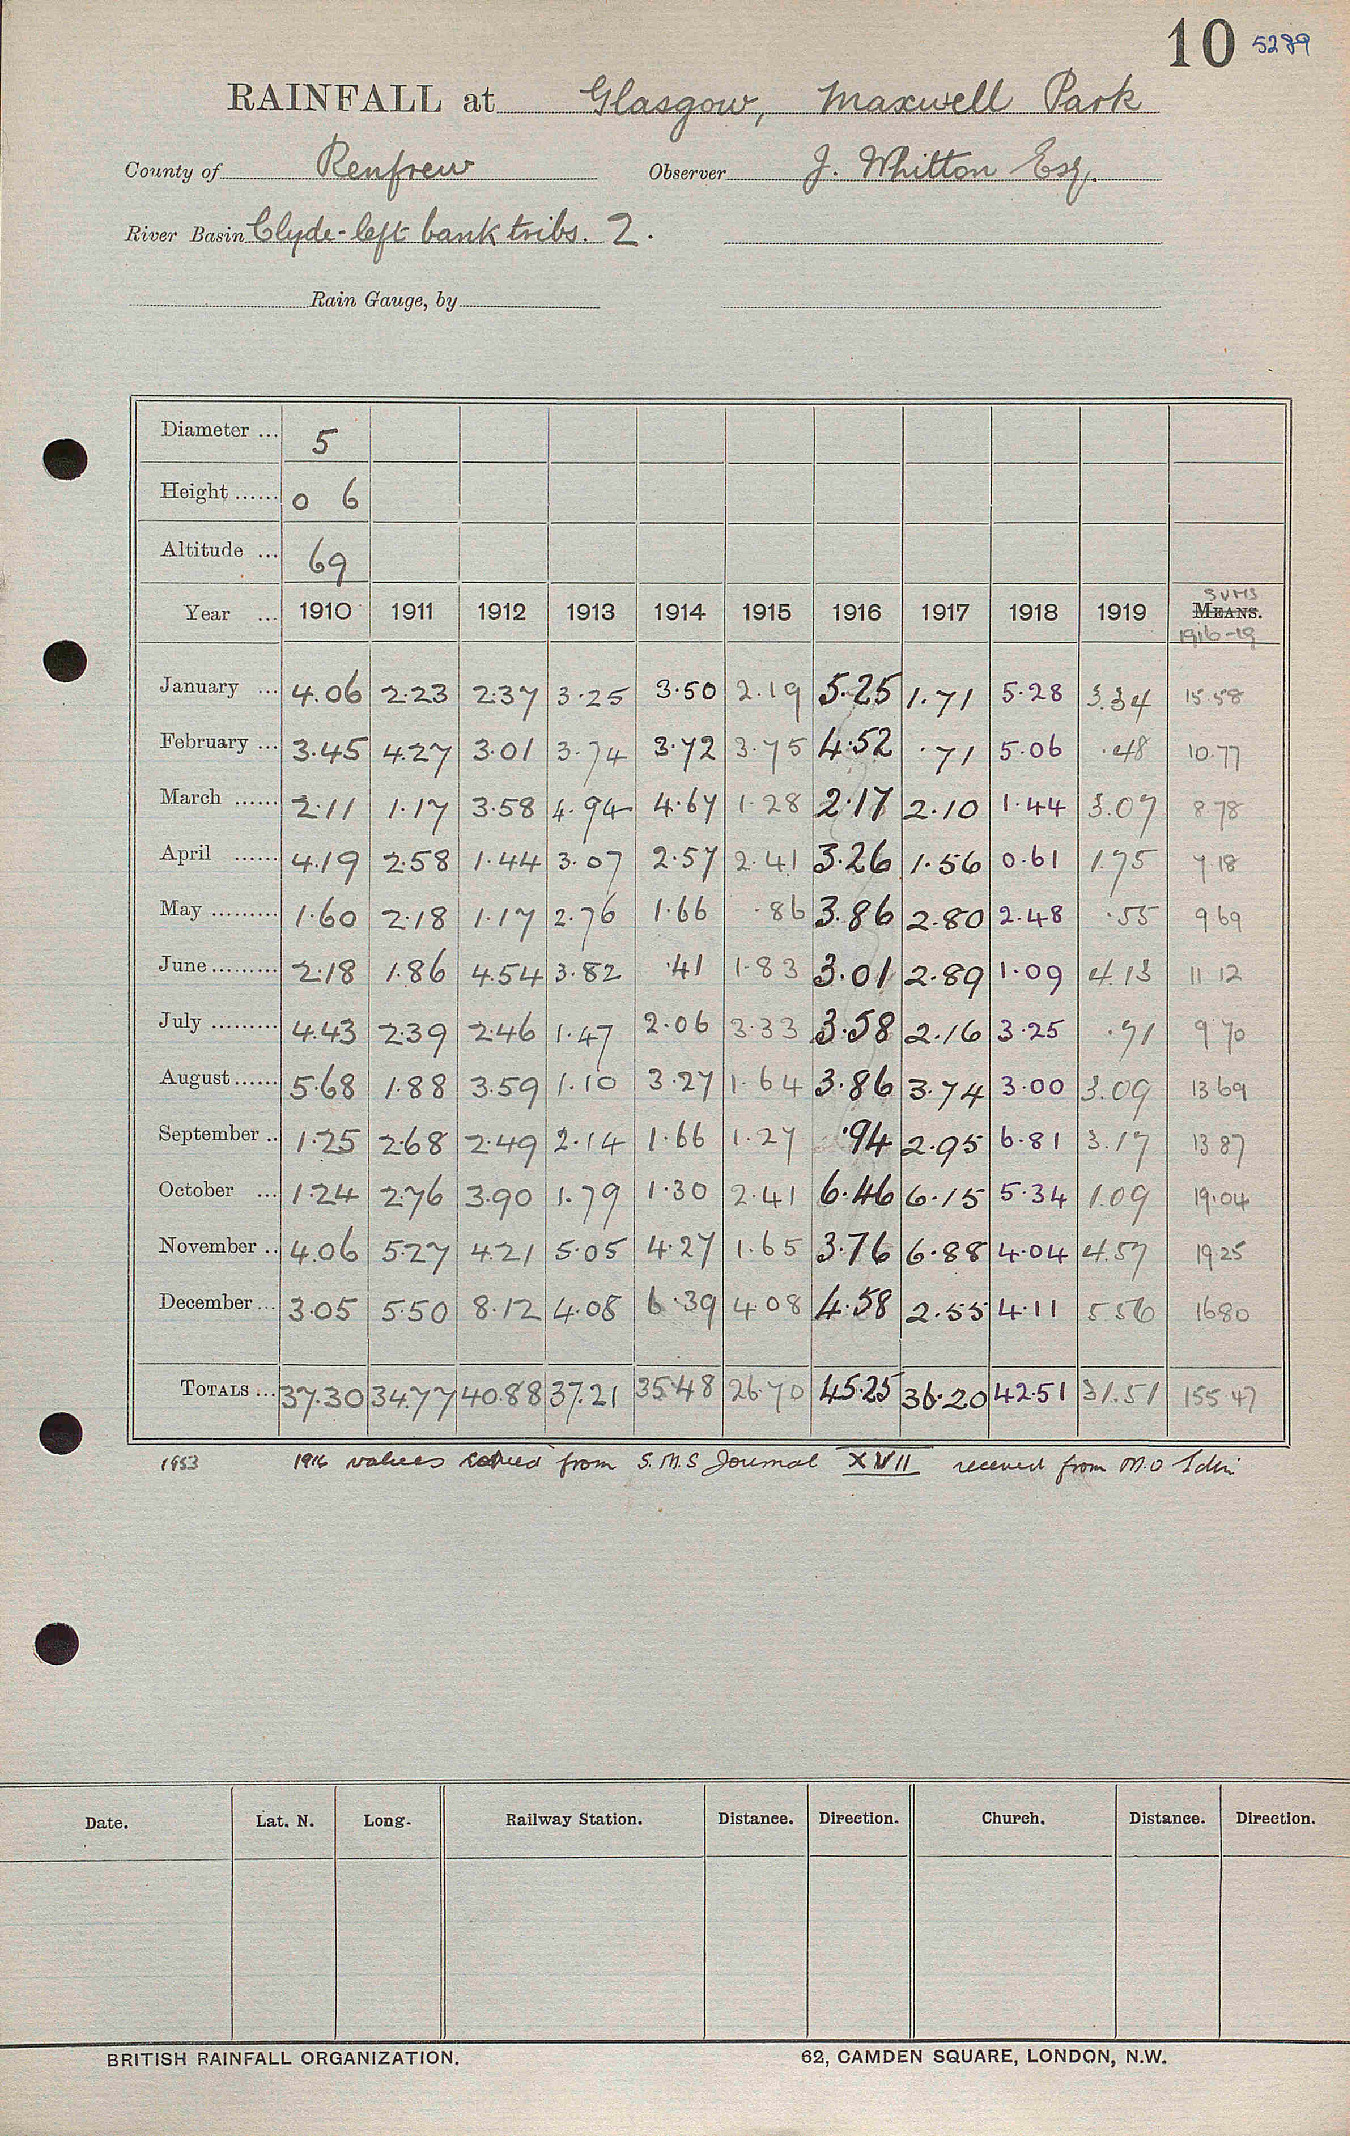 10 5289
RAINFALL at Glasgow, Maxwell Park
County of Renfrew Observer J. Whitton Esq.
River Basin Clyde-left bank tribs. 2.
Rain Gauge, by
Diameter ... 5
Height ...... 0 6
Altitude ... 69
SUMS
Year ... 1910 1911 1912 1913 1914 1915 1916 1917 1918 1919 MEANS.
1916-19
January ... 4.06 2.23 2.37 3.25 3.50 2.19 5.25 1.71 5.28 3.34 15.58
February ... 3.45 4.27 3.01 3.74 3.72 3.75 4.52 .71 5.06 .48 10.77
March ...... 2.11 1.17 3.58 4.94 4.67 1.28 2.17 2.10 1.44 3.07 8.78
April ...... 4.19 2.58 1.44 3.07 2.57 2.41 3.26 1.56 0.61 1.75 7.18
May ......... 1.60 2.18 1.17 2.76 1.66 .86 3.86 2.80 2.48 .55 9 69
June ......... 2.18 1.86 4.54 3.82 .41 1.83 3.01 2.89 1.09 4.13 11 12
July ......... 4.43 2.39 2.46 1.47 2.06 3.33 3.58 2.16 3.25 .71 9 70
August ...... 5.68 1.88 3.59 1.10 3.27 1.64 3.86 3.74 3.00 3.09 13 69
September .. 1.25 2.68 2.49 2.14 1.66 1.27 .94 2.95 6.81 3.17 13 87
October ... 1.24 2.76 3.90 1.79 1.30 2.41 6.46 6.15 5.34 1.09 19.04
November .. 4.06 5.27 4.21 5.05 4.27 1.65 3.76 6.88 4.04 4.57 19 25
December ... 3.05 5.50 8.12 4.08 6.39 4.08 4.58 2.55 4.11 5.56 16 80
TOTALS ... 37.30 34.77 40.88 37.21 35.48 26.70 45.25 36.20 42.51 31.51 155 47
1953 1916 values copied from S.M.S Journal XVII received from M.O Edin
Date. Lat. N. Long. Railway Station. Distance. Direction. Church. Distance. Direction.
BRITISH RAINFALL ORGANIZATION. 62, CAMDEN SQUARE, LONDON, N.W.